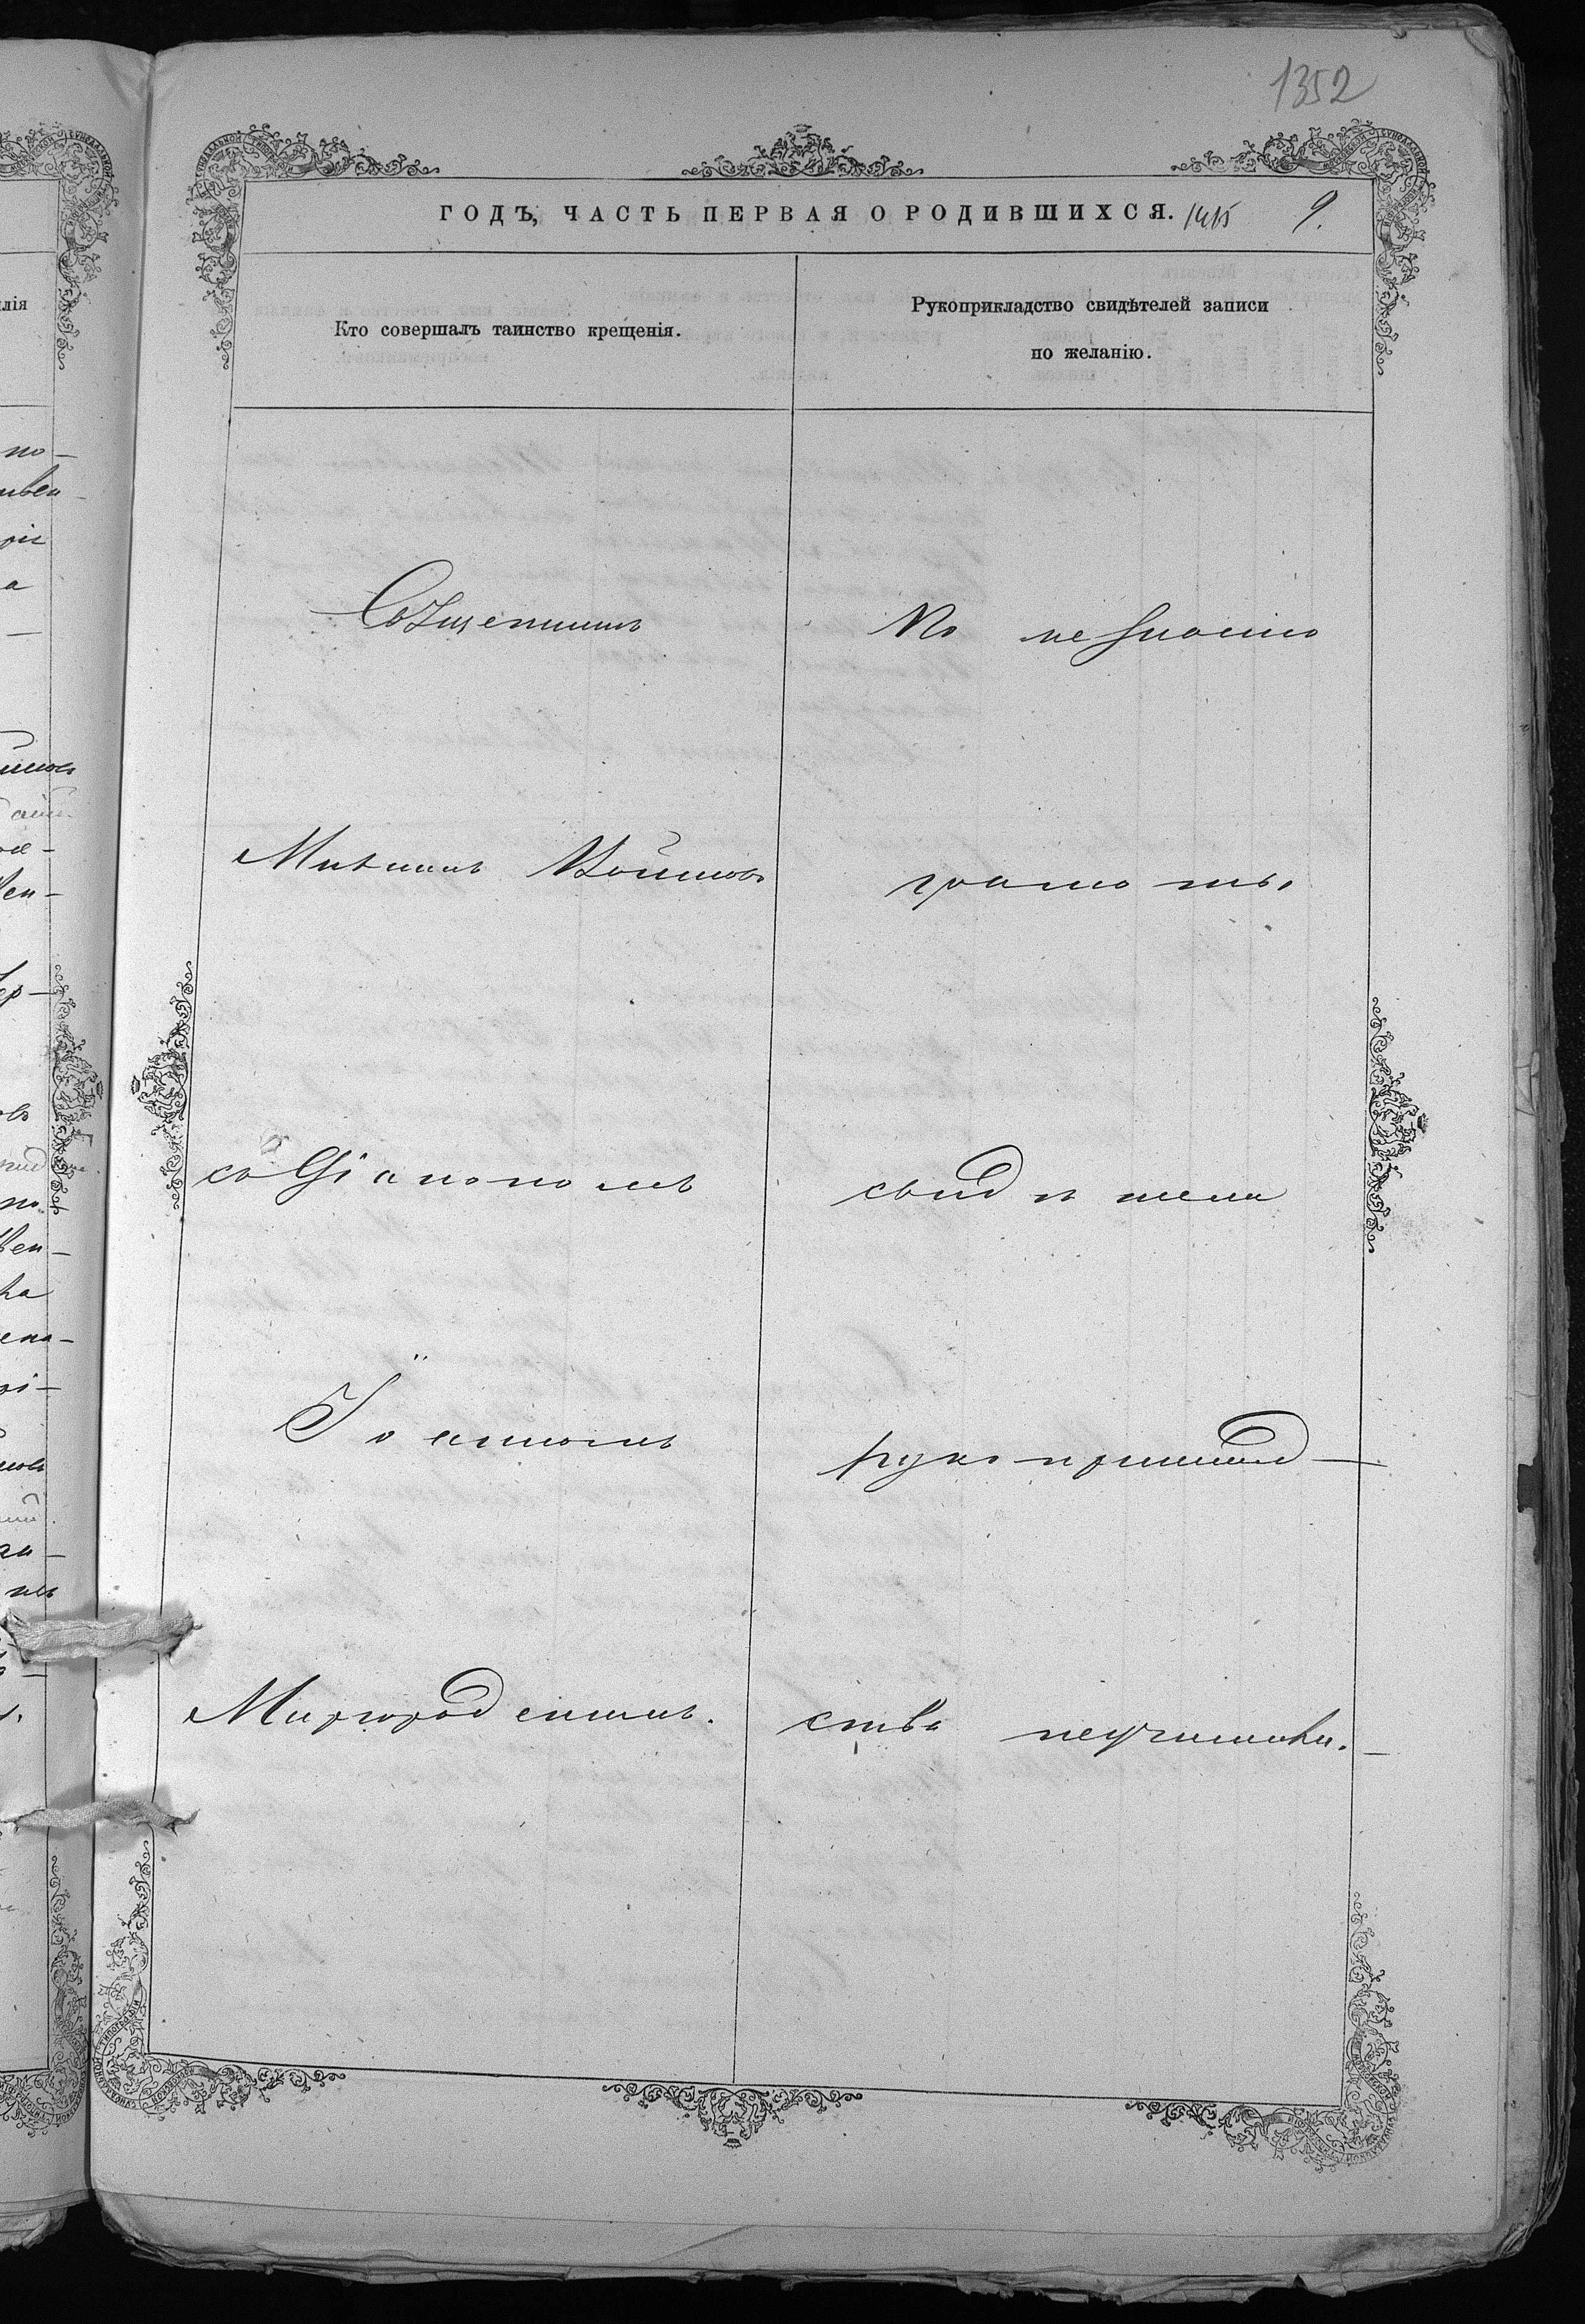 1352
ГОДЪ, ЧАСТЬ ПЕРВАЯ О РОДИВШИХСЯ. 1415 9.
Кто совершалъ таинство крещенія.
Рукоприкладство свидѣтелей записи
по желанію.
Священникъ
Войновъ
съ Діакономъ
Іоанномъ
Миргородскимъ.
По незнанію
грамоты
свидѣтели
рукоприклад-
ства неучинили.
лія
по-
а
вен-
ер-
по
вен-
на